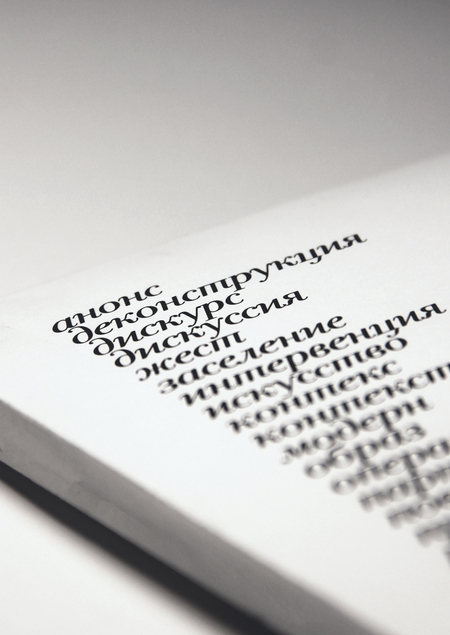 анонс
деконструкция
дискурс
дискуссия
жест
заселение
интервенция
искусство
контекс
контекст
модерн
образ